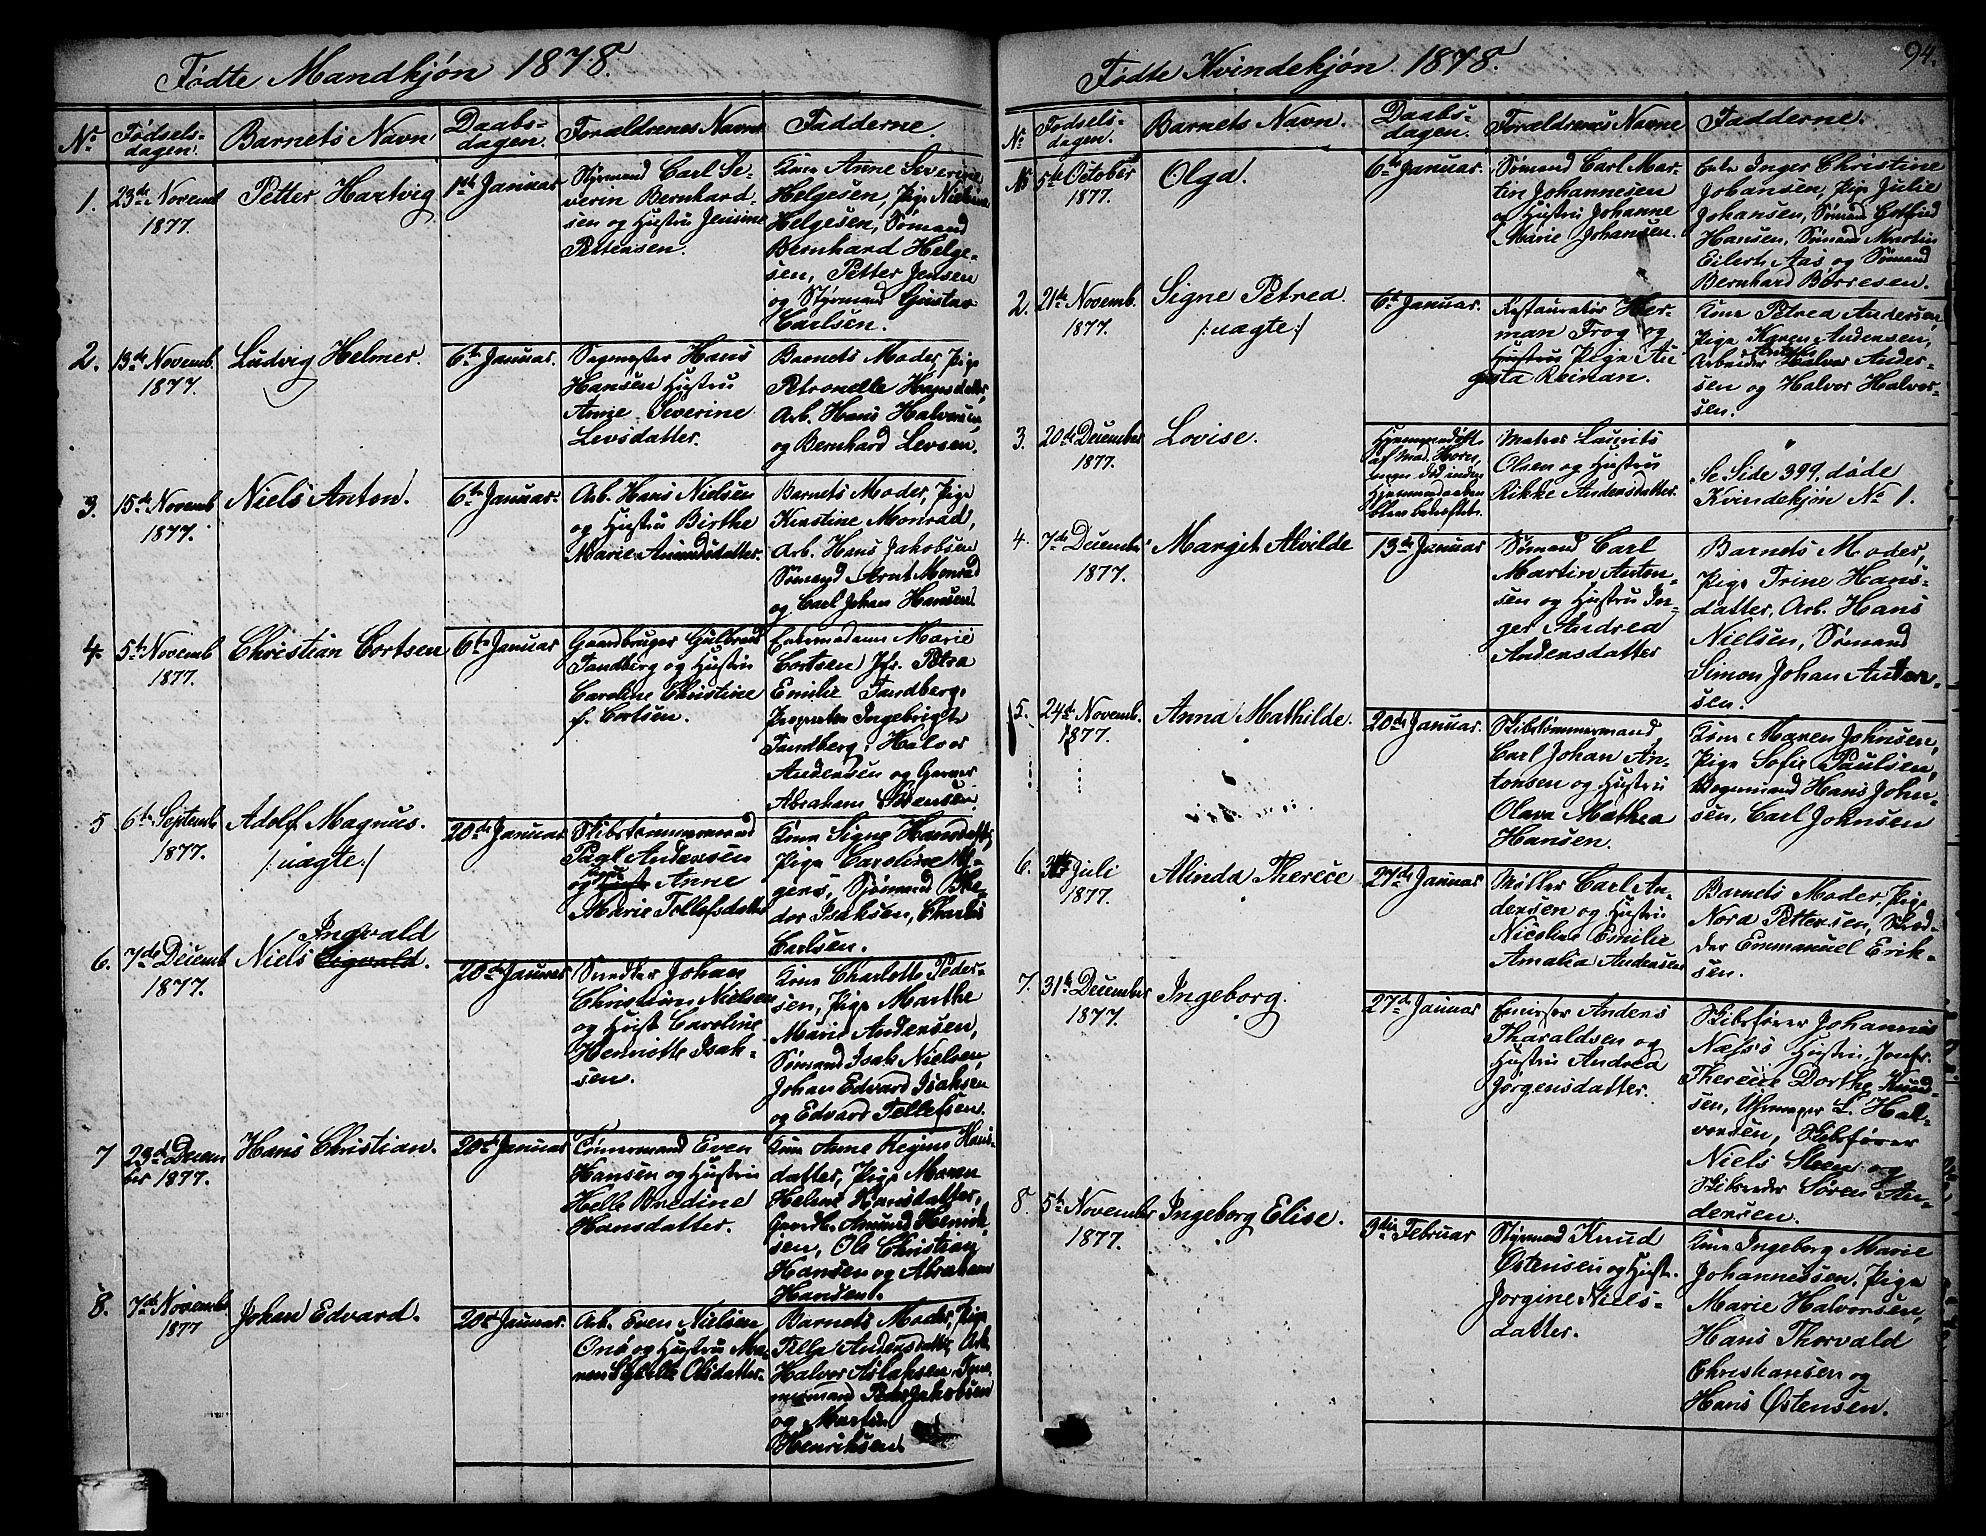 Fødte Mandkjøn 1878.
No Fødselsdagen. Barnets Navn Daabsdagen. Forældrenes Navne Fadderne.
1. 23de Novemb 1877. Petter Hartvig 1ste Januar
Styrmand Carl Se-
verin Bernhard-
sen og Hustru Jensine
Pettersen.
Kone Anne Severine
Helgesen, Pige
Helgesen, Sømand
Bernhard Helge-
sen, Petter Jensen
og Styrmand Gustav
Carlsen.
2. 13de Novemb. 1877. Ludvig Helmer. 6te Januar.
Sagmester Hans
Hansen Hustru
Anne Severine
Levsdatter.
Barnets Moder, Pige
Petronelle Hansdatter,
Arb. Hans Halvorsen,
og Bernhard Levsen.
3. 15de Novemb 1877. Niels Anton. 6te Januar.
Arb. Hans Nielsen
og Hustru Birthe
Marie Amundsdatter.
Barnets Moder, Pige
Kirstine Monrad,
Arb. Hans Jakobsen
Sømand Arnt Monrad
og Carl Johan Hansen.
4. 5te Novemb 1877. Christian Cortsen 6te Januar
Gaardbruger Gulbrand
Tandberg og Hustru
Caroline Christine
f. Cortsen.
Enkemadame Marie
Cortsen, Jfr. Petra
Emilie Tandberg,
Ingebrigt
Tandberg, Halvor
Andersen og Garver
Abraham Sørensen.
5 6te Septemb 1877. Adolf Magnus. /:uægte:/ 20de Januar
Skibstømmermand
Andersen
og Anne
Marie Tollefsdatter
Kone Signe Hansdatter,
Pige Caroline Mo-
gens, Sømand The-
dor Isaksen, Charles
Carlsen.
6. 7de Decemb 1877. Niels Ingvald 20de Januar
Snedker Johan
Christian Nielsen
og Hust. Caroline
Henriette Isak-
sen.
Kone Charlotte Peder-
sen, Pige Marthe
Marie Andersen,
Sømand Isak Nielsen,
Johan Edvard Isaksen
og Edvard Tellefsen.
7 23d December 1877. Hans Christian. 20de Januar
Tømmermand Even
Hansen og Hustru
Helle Bredine
Hansdatter.
Kone Anne Regine Hans-
datter, Pige Maren
Helene Hansdatter,
Gaardb. Amund Henrik-
sen, Ole Christian
Hansen og Abraham
Hansen.
8. 7de Novemb 1877 Johan Edvard. 20de Januar.
Arb. Even Nielsen
Onsø og Hustru Ma-
ren Olsdatter.
Barnets Moder, Pige
Andersdatter, Arb.
Halvor Aslaksen, Tøm-
mermand Peder Jakobsen
og Martin
Henriksen.
Fødte Kvindekjøn 1878. 94.
No Fødselsdagen. Barnets Navn. Daabsdagen. Forældrenes Navne Fadderne.
5te October 1877. Olga. 6te Januar.
Sømand Carl Mar-
tin Johannesen
og Hustru Johanne
Marie Johansen.
Enke Inger Christine
Johansen, Pige Julie
Johansen, Sømand Gotfried
Hansen, Sømand Martin
Eilert Aas og Sømand
Bernhard Børresen.
2. 21de Novemb. 1877. Signe Petrea. /:uægte:/ 6te Januar.
Restauratør Her-
man Frog og
Hustru Pige Au-
gusta Reinan.
Kone Petrea Andersen,
Pige Karen Andersen,
Arbeider Ander-
sen og Halvor Halvor-
sen.
3. 20de December 1877. Lovise.
Hjemmedøbt
af Mad. Horn,
men død inden
Hjemmedaaben
blev bekræftet.
Matros Laurits
Olsen og Hustru
Rikke Andersdatter.
"
Se Side 399, døde
Kvindekjøn No 1.
4. 7de December 1877. Margith Alvilde 13de Januar
Sømand Carl
Martin Anton-
sen og Hustru In-
ger Andrea
Andersdatter
Barnets Moder,
Pige Trine Hans-
datter, Arb. Hans
Nielsen, Sømand
Simon Johan Ander-
sen.
5. 24de Novemb. 1877. Anna Mathilde. 20de Januar.
Skibstømmermand
Carl Johan An-
tonsen og Hustru
Olava Mathea
Hansen.
Kone Maren Johnsen,
Pige Sofie Paulsen,
Hans John-
sen, Carl Johnsen
6. Juli 1877. Alinda Therece 27de Januar
Møller Carl An-
dersen og Hustru
Nicoline Emilie
Amalia Andersen
Barnets Moder, Pige
Nora Pettersen, Skræd-
der Emmanuel Erik-
sen.
7. 31te December 1877. Ingeborg. 27de Januar
Anders
Tharaldsen og
Hustru Andrea
Jørgensdatter.
Skibsfører Johannes
Næss's Hustru, Jomfr.
Therecie Dorthe Knud-
sen, Uhrmager L. Hal-
vorsen, Skibsfører
Niels Steen og
Skibsreder Søren An-
dersen.
8. 5te November 1877. Ingeborg Elise. 3die Februar
Styrmand Knud
Østensen og Hust.
Jorgine Niels-
datter.
Kone Ingeborg Marie
Johannessen, Pige
Marie Halvorsen,
Hans Thorvald
Christiansen og
Hans Østensen.